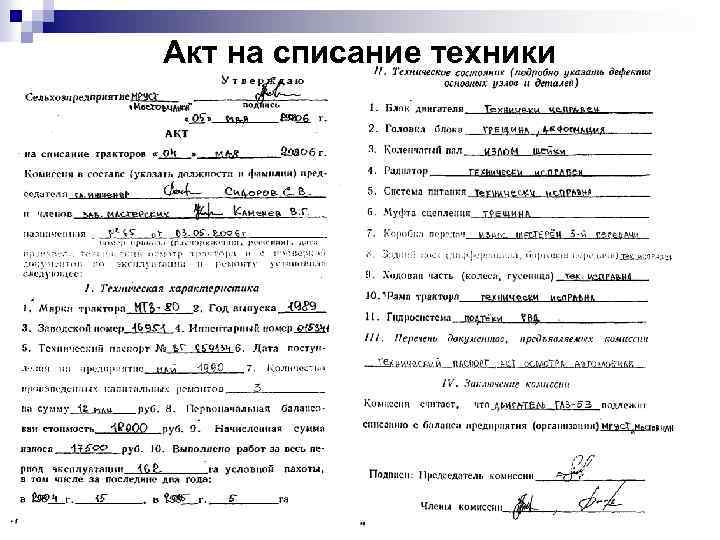 Акт на списание техники
Утверждаю
Сельхозпредприятие МРУСТ
"Мостовчанин" подпись
«05» мая 2006 г.
АКТ
на списание тракторов «04» мая 2006 г.
Комиссия в составе (указать должности и фамилии) пред-
седателя гл. инженер Сидоров С.В.
и членов зав. мастерских Каменев В.Г.
назначенная №55 от 03.05.2006г
номер приказа (распоряжения, решения), дата
технический осмотр трактора и с проверкой
документов по эксплуатации и ремонту установила
следующее:
I. Техническая характеристика
1. Марка трактора МТЗ-80 2. Год выпуска 1989
3. Заводской номер 16951 4. Инвентарный номер 015341
5. Технический паспорт № ВГ 959134 6. Дата поступ-
ления на предприятие май 1990 7. Количество
произведенных капитальных ремонтов 3
на сумму 12 млн руб. 8. Первоначальная балансо-
вая стоимость 18900 руб. 9. Начисленная сумма
износа 17500 руб. 10. Выполнено работ за весь пе-
риод эксплуатации 162 га условной пахоты,
в том числе за последние два года:
в 2004 г. 15, в 2005 г. 5 га
II. Техническое состояние (подробно указать дефекты
основных узлов и деталей)
1. Блок двигателя технически исправен
2. Головка блока трещина, деформация
3. Коленчатый вал излом шейки
4. Радиатор технически исправен
5. Система питания технически исправна
6. Муфта сцепления трещина
7. Коробка передач износ шестерён 5-й передачи
8. Задний мост (дифференциал, бортовая передача) тех. исправен
9. Ходовая часть (колеса, гусеница) тех. исправна
10. Рама трактора технически исправна
11. Гидросистема подтёки РВД
III. Перечень документов, предъявляемых комиссии
технический паспорт, акт осмотра автомобиля
IV. Заключение комиссии
Комиссия считает, что двигатель ГАЗ-53 подлежит
списанию с баланса предприятия (организации) МРУСТ "Мостовчанин"
Подписи: Председатель комиссии
Члены комиссии